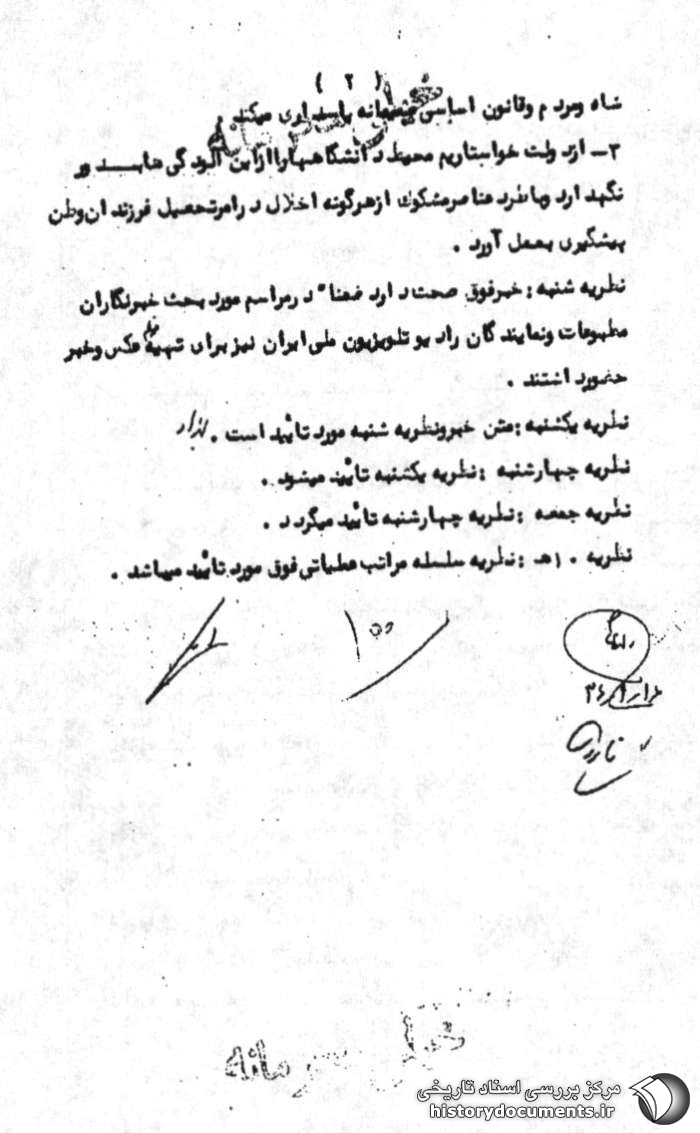 ( ۲ )
شاه ومردم وقانون اساسی صمیمانه پاسداری میکند
۳ـ ازدولت خواستاریم محیط دانشگاهها راازاین آلودگی ها بدور
نگهدارد وباطرد عناصرمشکوک ازهرگونه اخلال درامرتحصیل فرزندان وطن
پیشگیری بعمل آورد .
نظریه شنبه : خبرفوق صحت دارد ضمنا" درمراسم مورد بحث خبرنگاران
مطبوعات ونمایندگان رادیو تلویزیون ملی ایران نیز برای تهیه عکس وخبر
حضورداشتند .
نظریه یکشنبه : متن خبرونظریه شنبه مورد تائید است .
نظریه چهارشنبه : نظریه یکشنبه تائید میشود .
نظریه جمعه : نظریه چهارشنبه تائید میگردد .
نظریه ۱۰ هـ : نظریه سلسله مراتب عملیاتی فوق مورد تائید میباشد .
خیلی محرمانه
مرکز بررسی اسناد تاریخی
historydocuments.ir